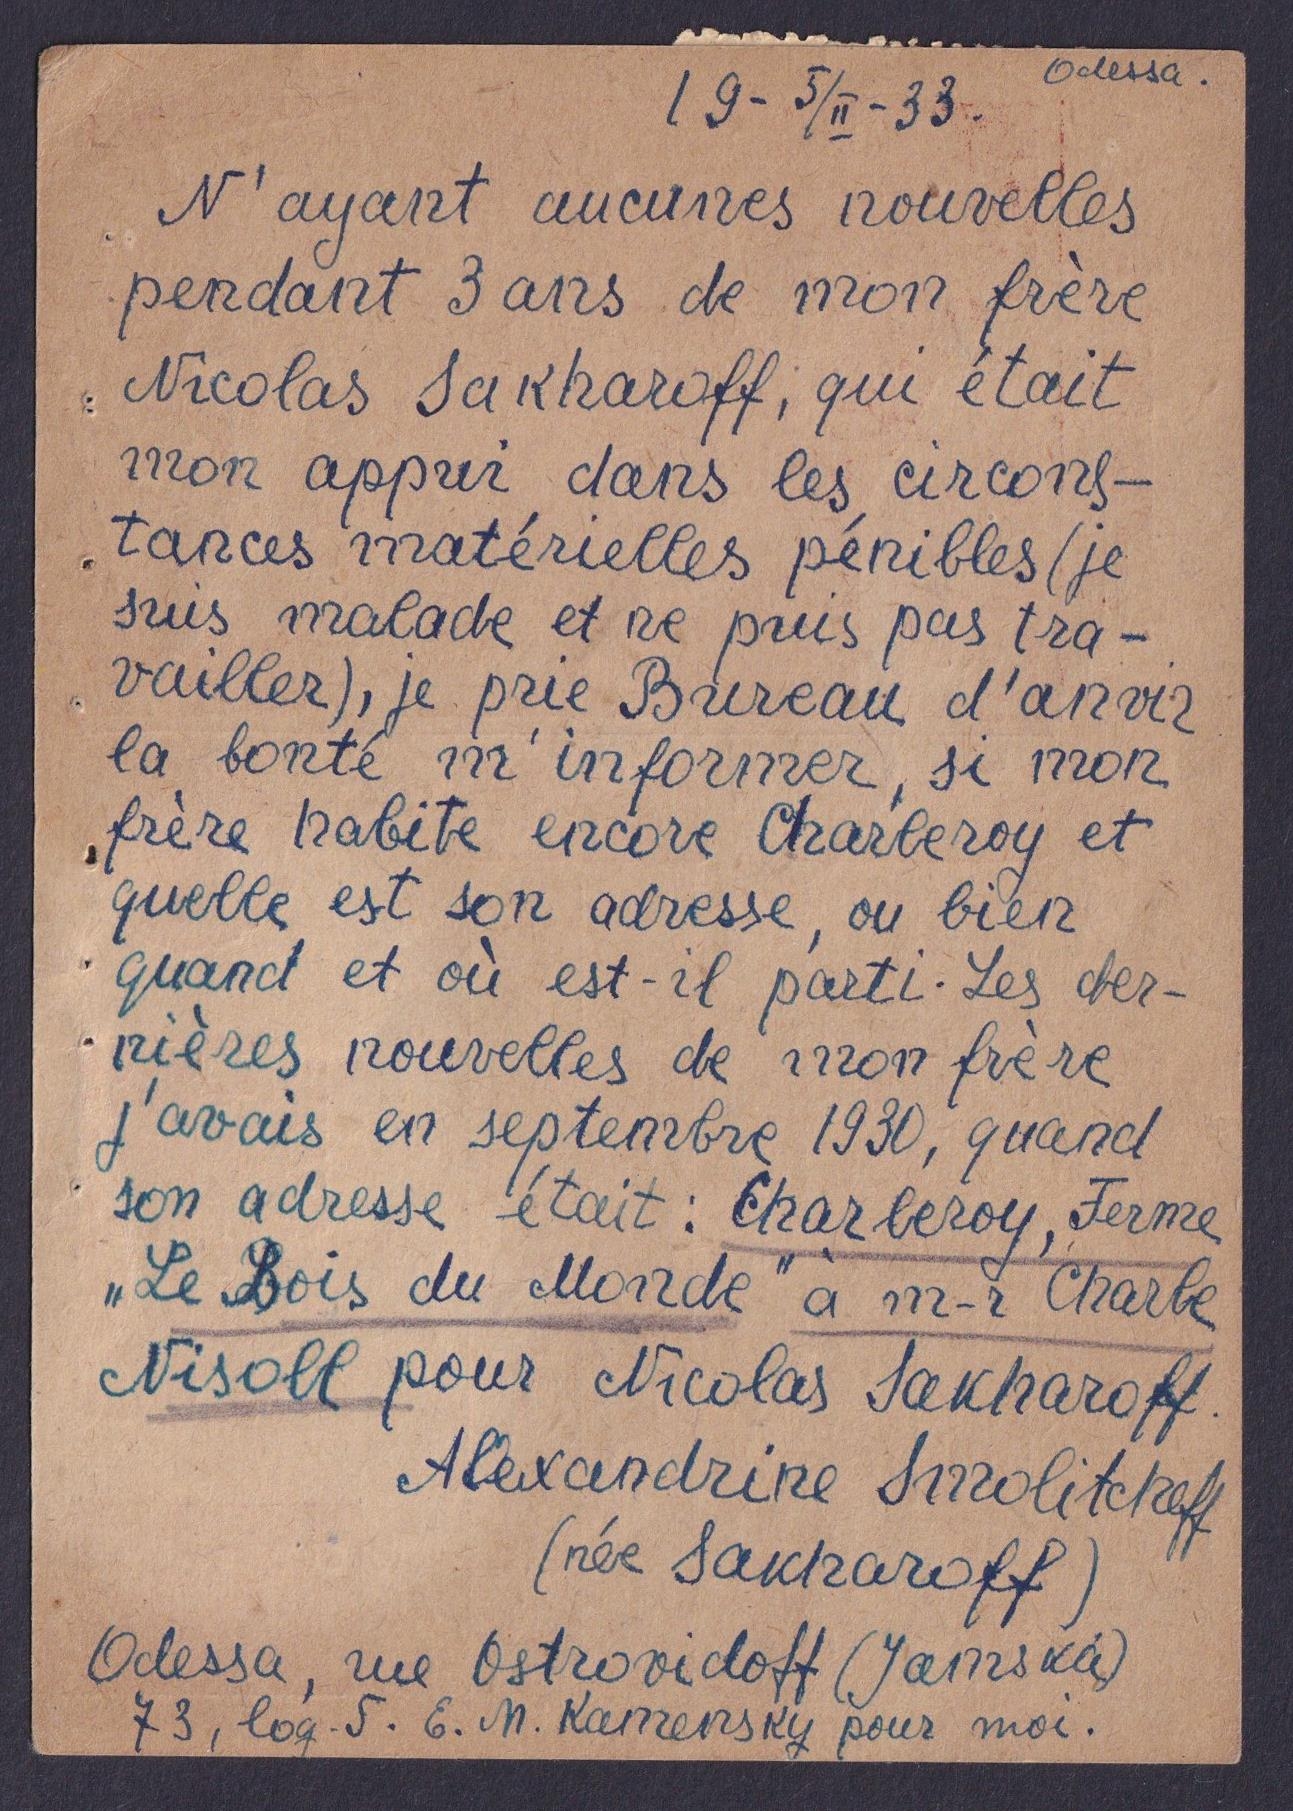 Odessa.
19-5/II-33.
N'ayant aucunes nouvelles
pendant 3 ans de mon frère
Nicolas Sakharoff, qui était
mon appui dans les circons-
tances matérielles pénibles (je
suis malade et ne puis pas tra-
vailler), je prie Bureau d'anvir
la bonté m'informer, si mon
frère habite encore Charleroy et
quelle est son adresse, ou bien
quand et où est-il parti. Les der-
nières nouvelles de mon frère
j'avais en septembre 1930, quand
son adresse était: Charleroy, Ferme
„Le Bois du Monde" à m-r Charle
Nisoll pour Nicolas Sakharoff.
Alexandrine Smolitcheff
(née Sakharoff)
Odessa, rue Ostrovidoff (Jamska)
73, log. 5. E. M. Kamensky pour moi.